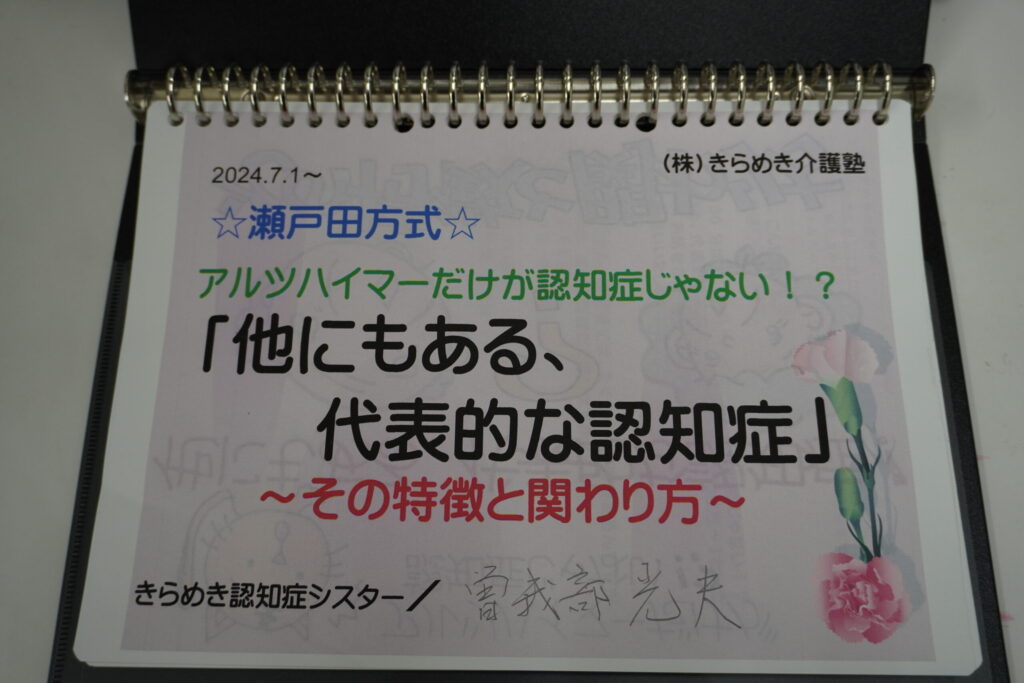 2024.7.1～
(株)きらめき介護塾
☆瀬戸田方式☆
アルツハイマーだけが認知症じゃない！？
「他にもある、
代表的な認知症」
～その特徴と関わり方～
きらめき認知症シスター／ 曽我部光夫